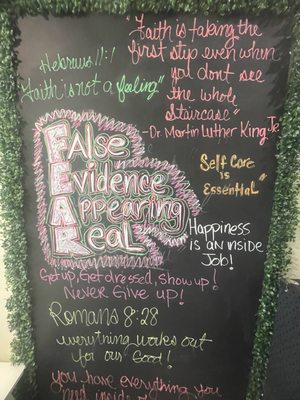 "Faith is taking the
first step even when
you don't see
the whole
Staircase"
- Dr. Martin Luther King, Jr.
Hebrews 11:1
"Faith is not a feeling"
FEAR
False
Evidence
Appearing
Real
Self Care
is
Essential"
Happiness
is an inside
Job!
Get up, Get dressed, Show up!
Never Give up!
Romans 8:28
everything works out
for our Good!
you have everything you
need inside